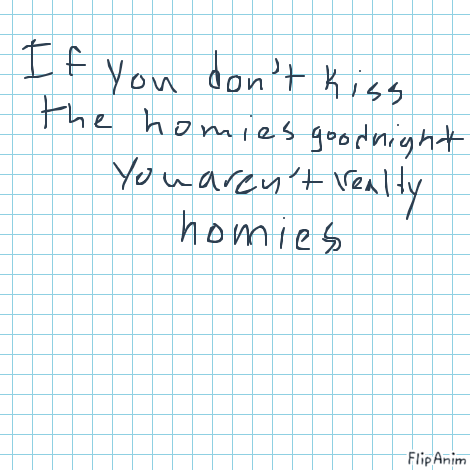 If you don't kiss
the homies goodnight
You aren't really
homies
FlipAnim